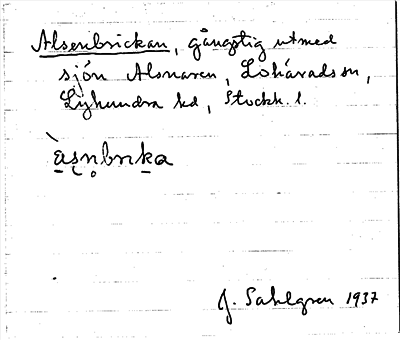 Alsenbrickan, gångstig utmed
sjön Alsnaren, Lohäradssn,
Lyhundra hd, Stockh. l.
àṣn̥brika
J. Sahlgren 1937